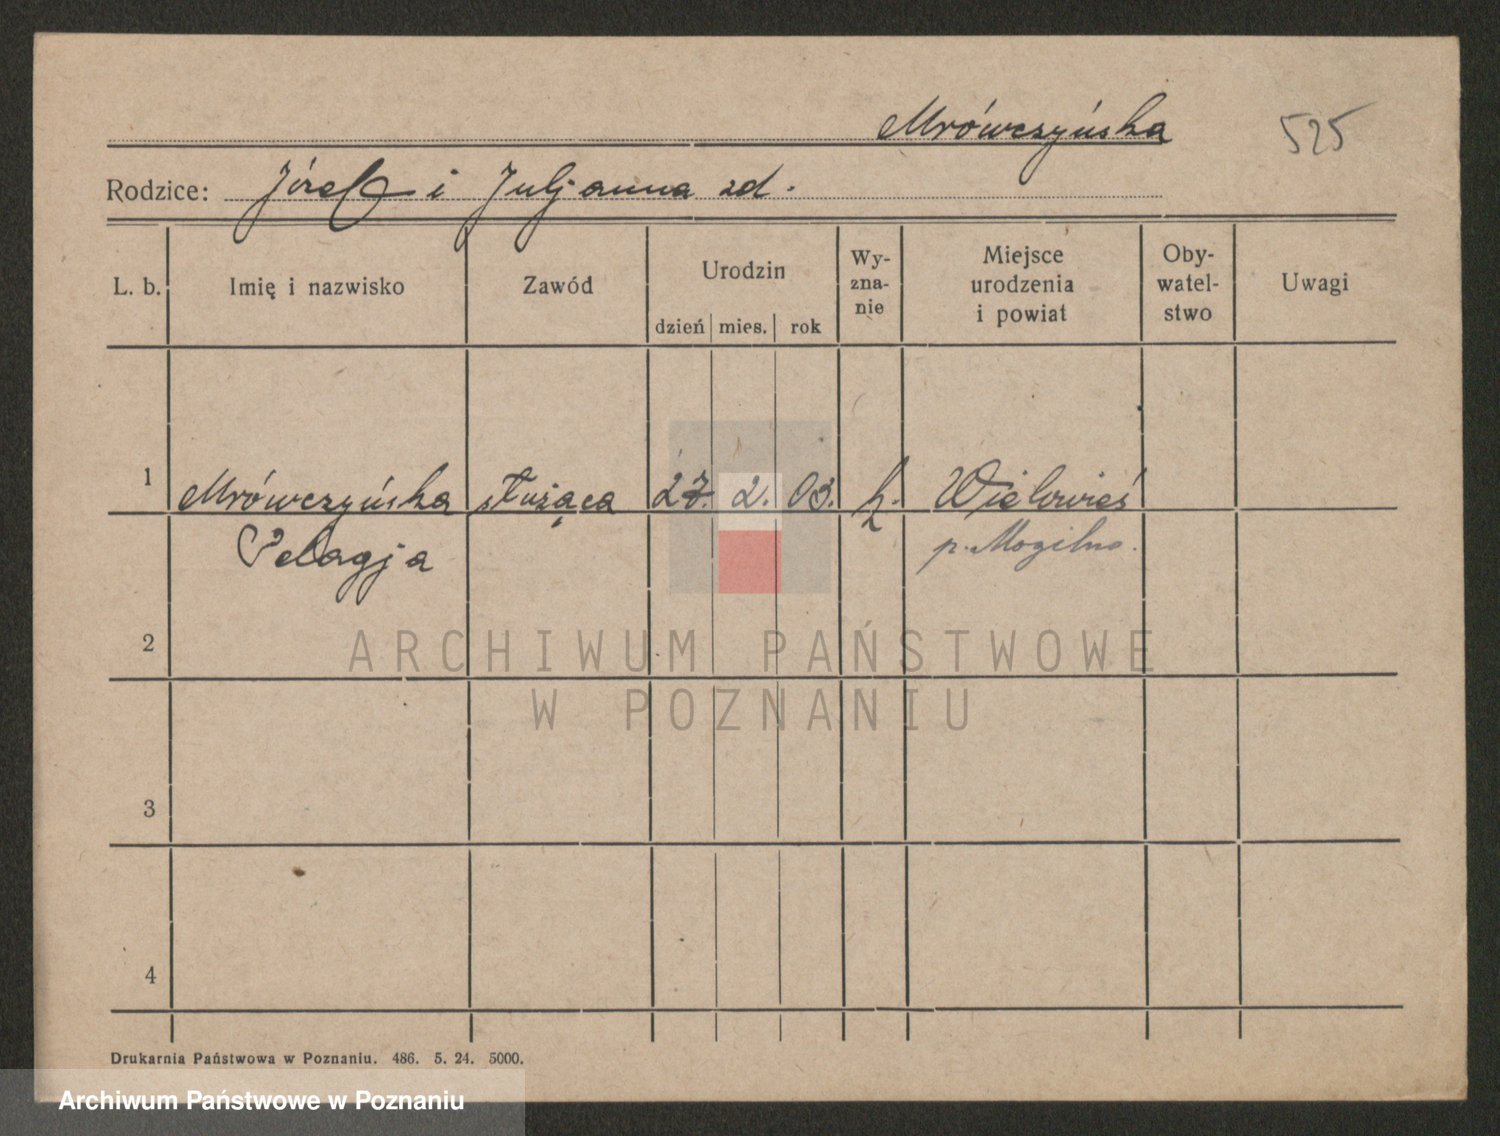 Mrówczyńska
525
Rodzice: Józef i Juljanna zd.
L. b. Imię i nazwisko Zawód Urodzin dzień mies. rok Wy-zna-nie Miejsce urodzenia i powiat Oby-watel-stwo Uwagi
1 Mrówczyńska służąca 27. 2. 03. k. Wielowieś
Pelagja p. Mogilno.
2
ARCHIWUM PAŃSTWOWE
W POZNANIU
3
4
Drukarnia Państwowa w Poznaniu. 486. 5. 24. 5000.
Archiwum Państwowe w Poznaniu